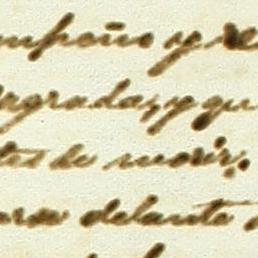 mpeño y re
gradas, y qu
tes de morir,
delante